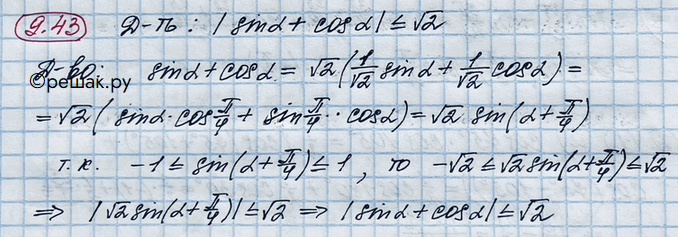 9.43 Д-ть: |sinα + cosα| ≤ √2
Д-во: sinα + cosα = √2(1/√2 sinα + 1/√2 cosα) =
©решак.ру
= √2(sinα·cos π/4 + sin π/4 · cosα) = √2 sin(α + π/4)
т.к. -1 ≤ sin(α + π/4) ≤ 1, то -√2 ≤ √2 sin(α + π/4) ≤ √2
⇒ |√2 sin(α + π/4)| ≤ √2 ⇒ |sinα + cosα| ≤ √2